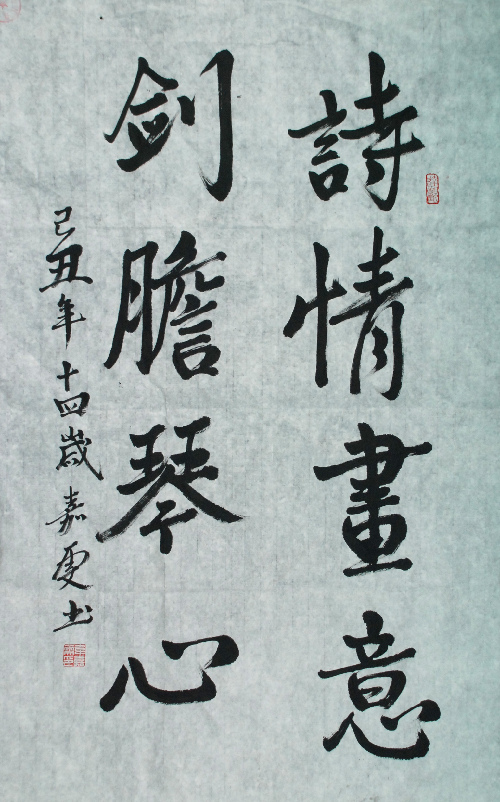 詩情畫意
劍膽琴心
己丑年十四歲嘉更书